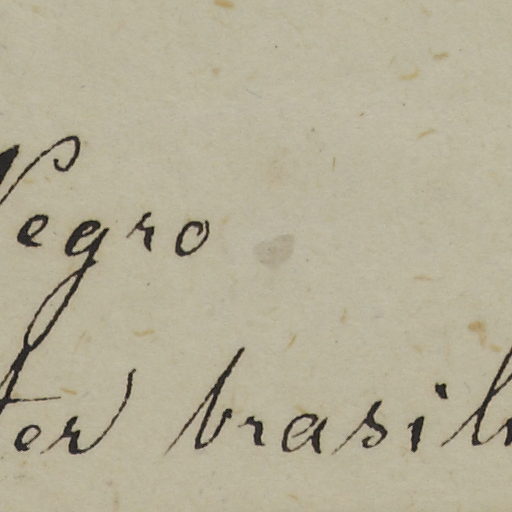 Negro
ter brasil